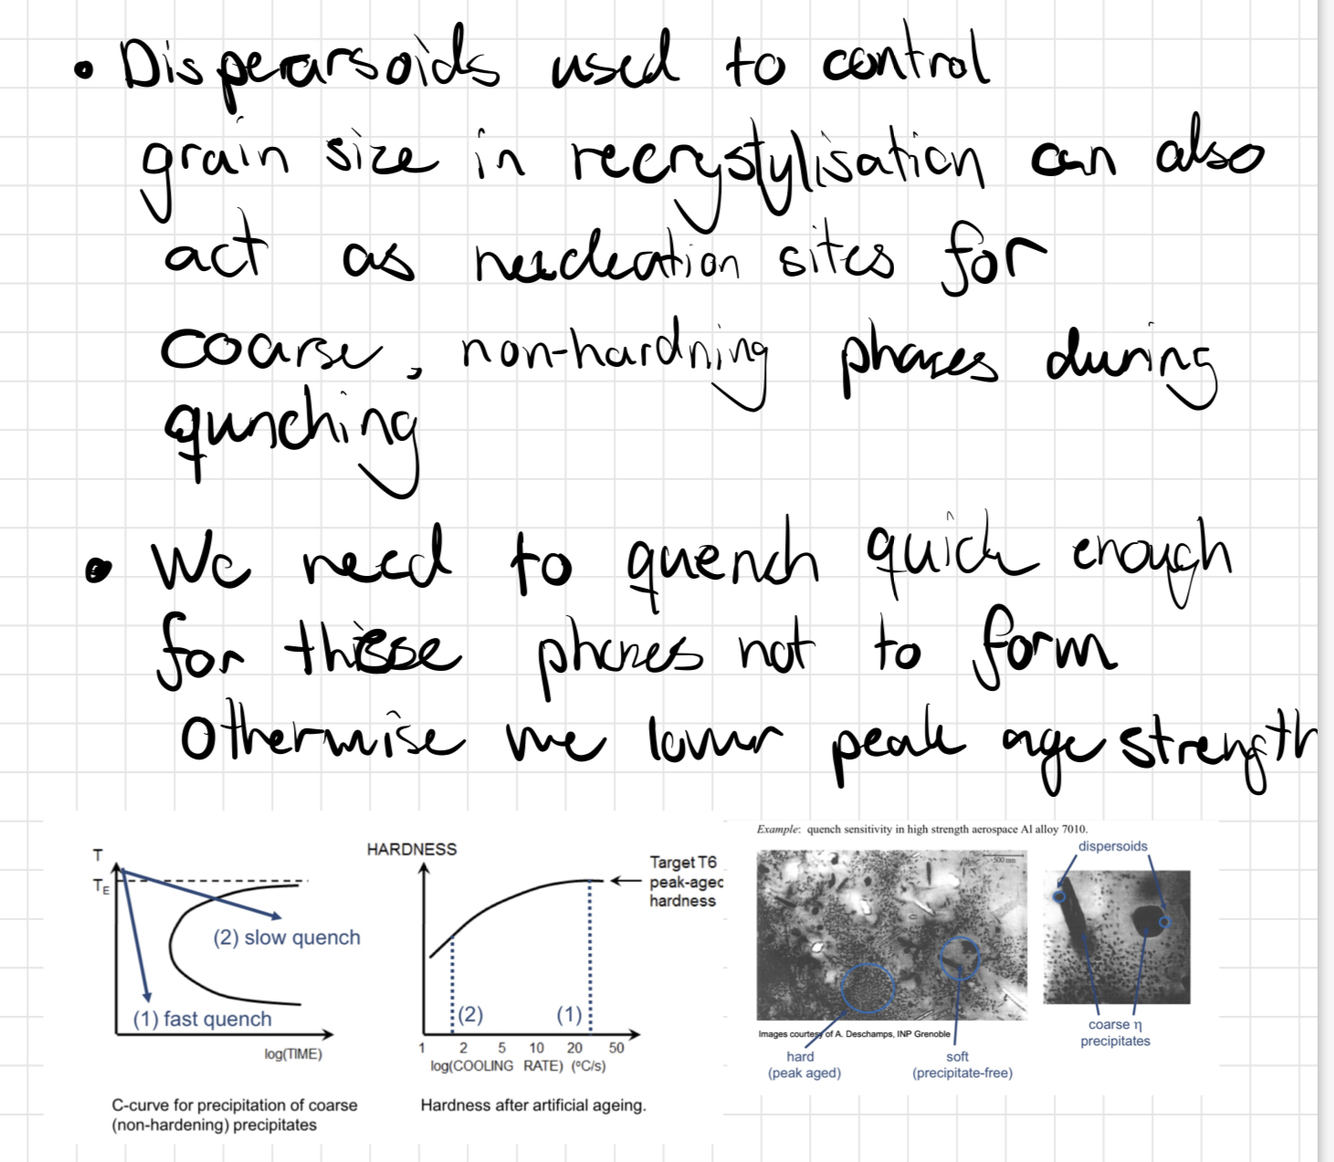 • Disperarsoids used to control
grain size in recrystylisation can also
act as nucleation sites for
coarse, non-hardning phases during
qunching
• We need to quench quick enough
for these phases not to form
Otherwise we lower peak age strength
Example: quench sensitivity in high strength aerospace Al alloy 7010.
T
TE
(2) slow quench
(1) fast quench
log(TIME)
C-curve for precipitation of coarse
(non-hardening) precipitates
HARDNESS
Target T6
peak-aged
hardness
(2)
(1)
1 2 5 10 20 50
log(COOLING RATE) (ºC/s)
Hardness after artificial ageing.
500 nm
Images courtesy of A. Deschamps, INP Grenoble
hard
(peak aged)
soft
(precipitate-free)
dispersoids
coarse η
precipitates